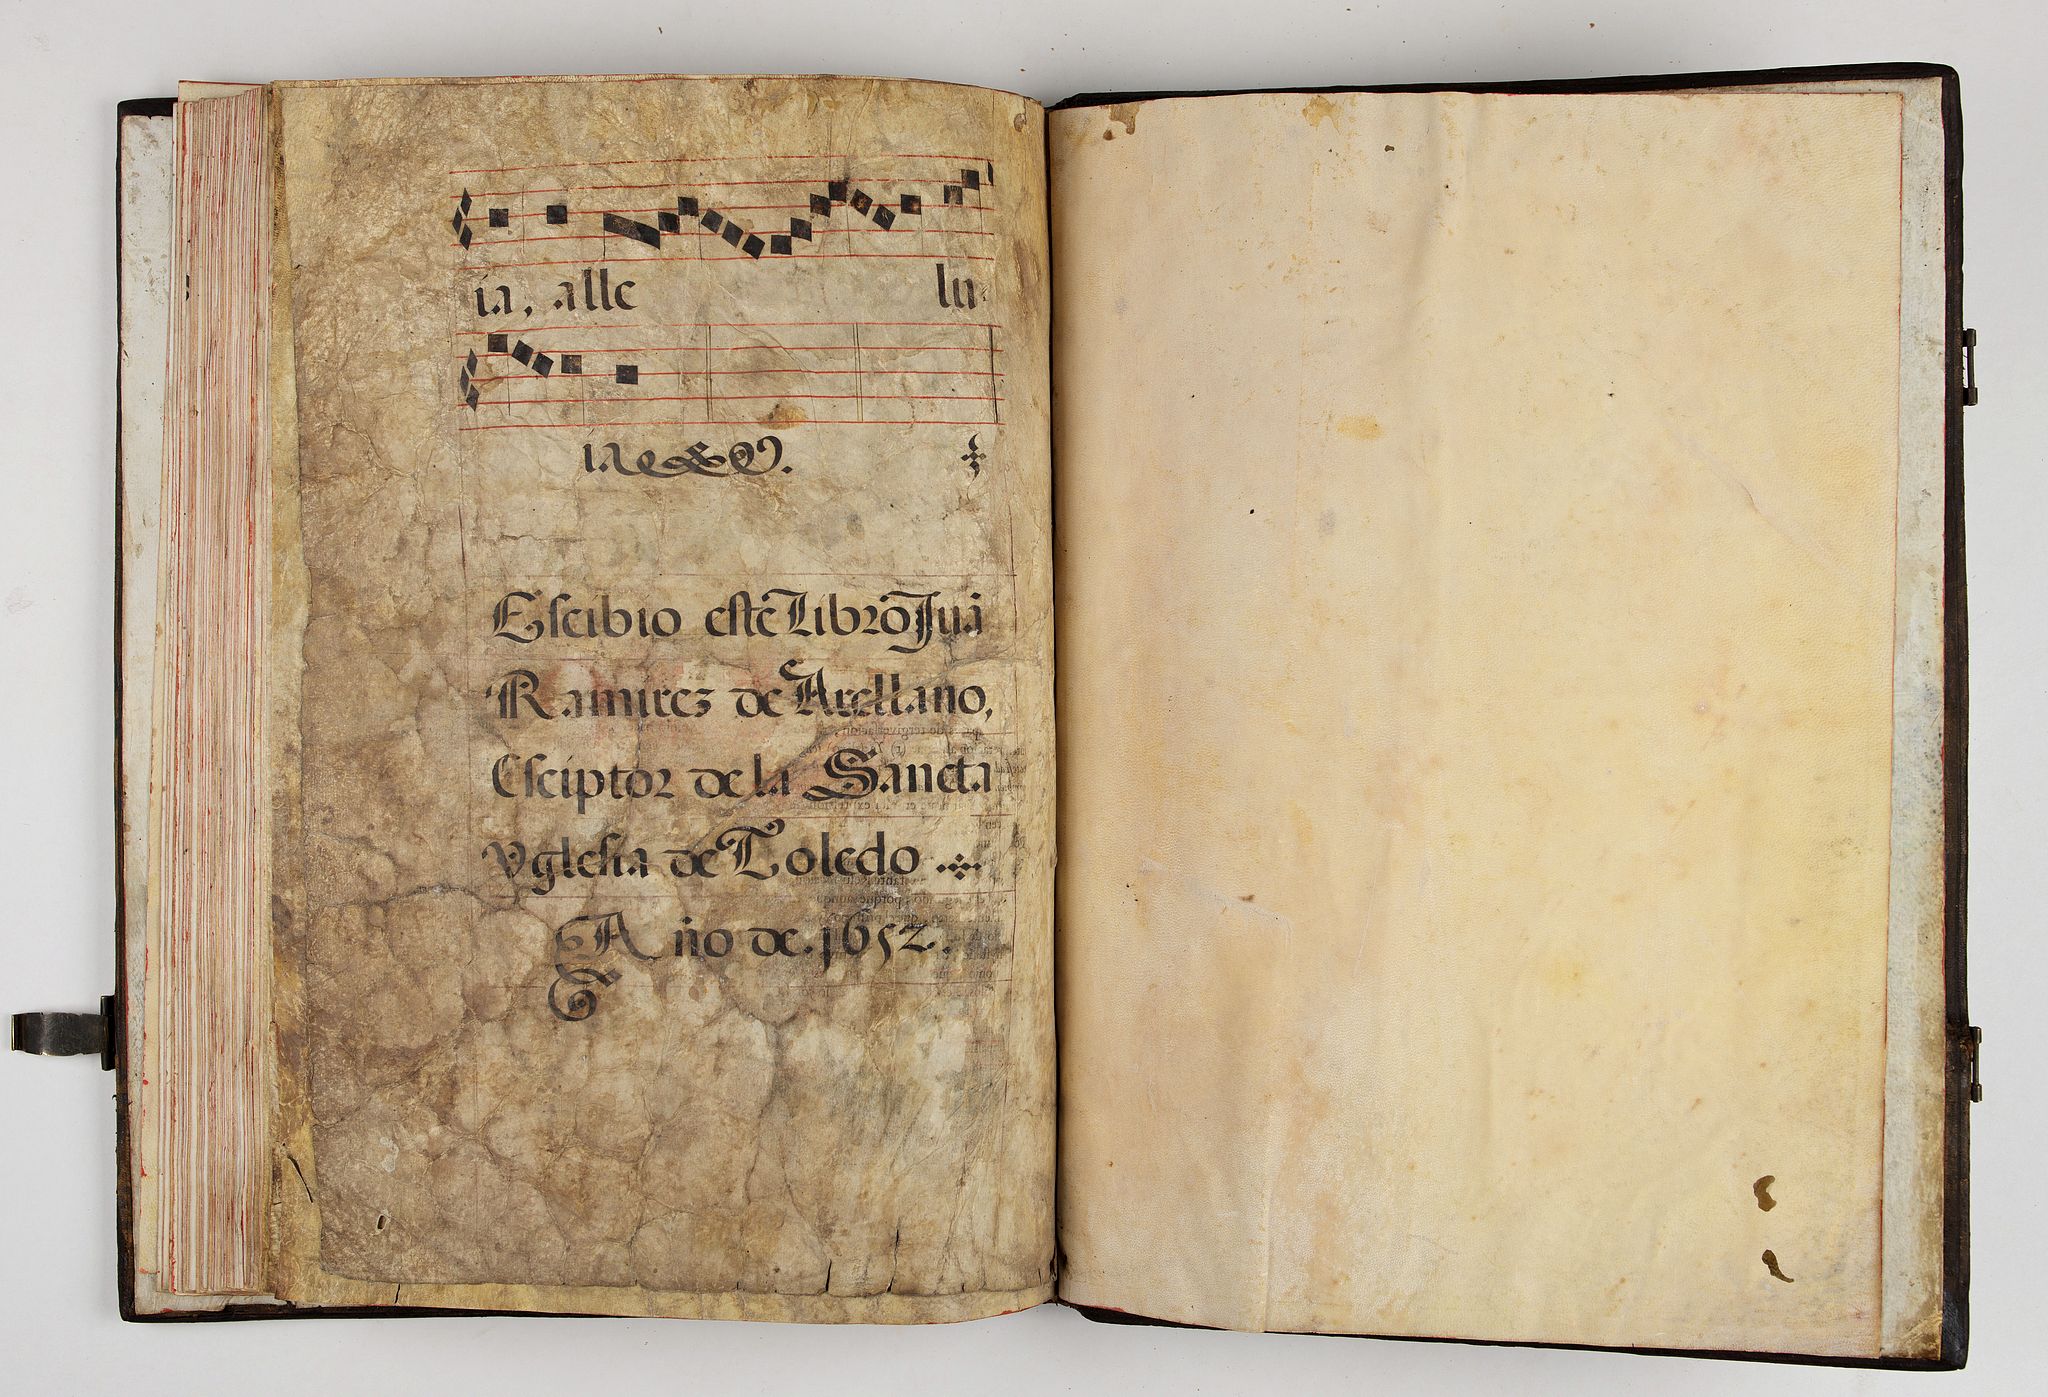 ia, alle lu
ia.
Escibio este Libro Jua
Ramirez de Arellano,
Esciptor de la Sancta
Yglesia de Toledo
Año de. 1652.